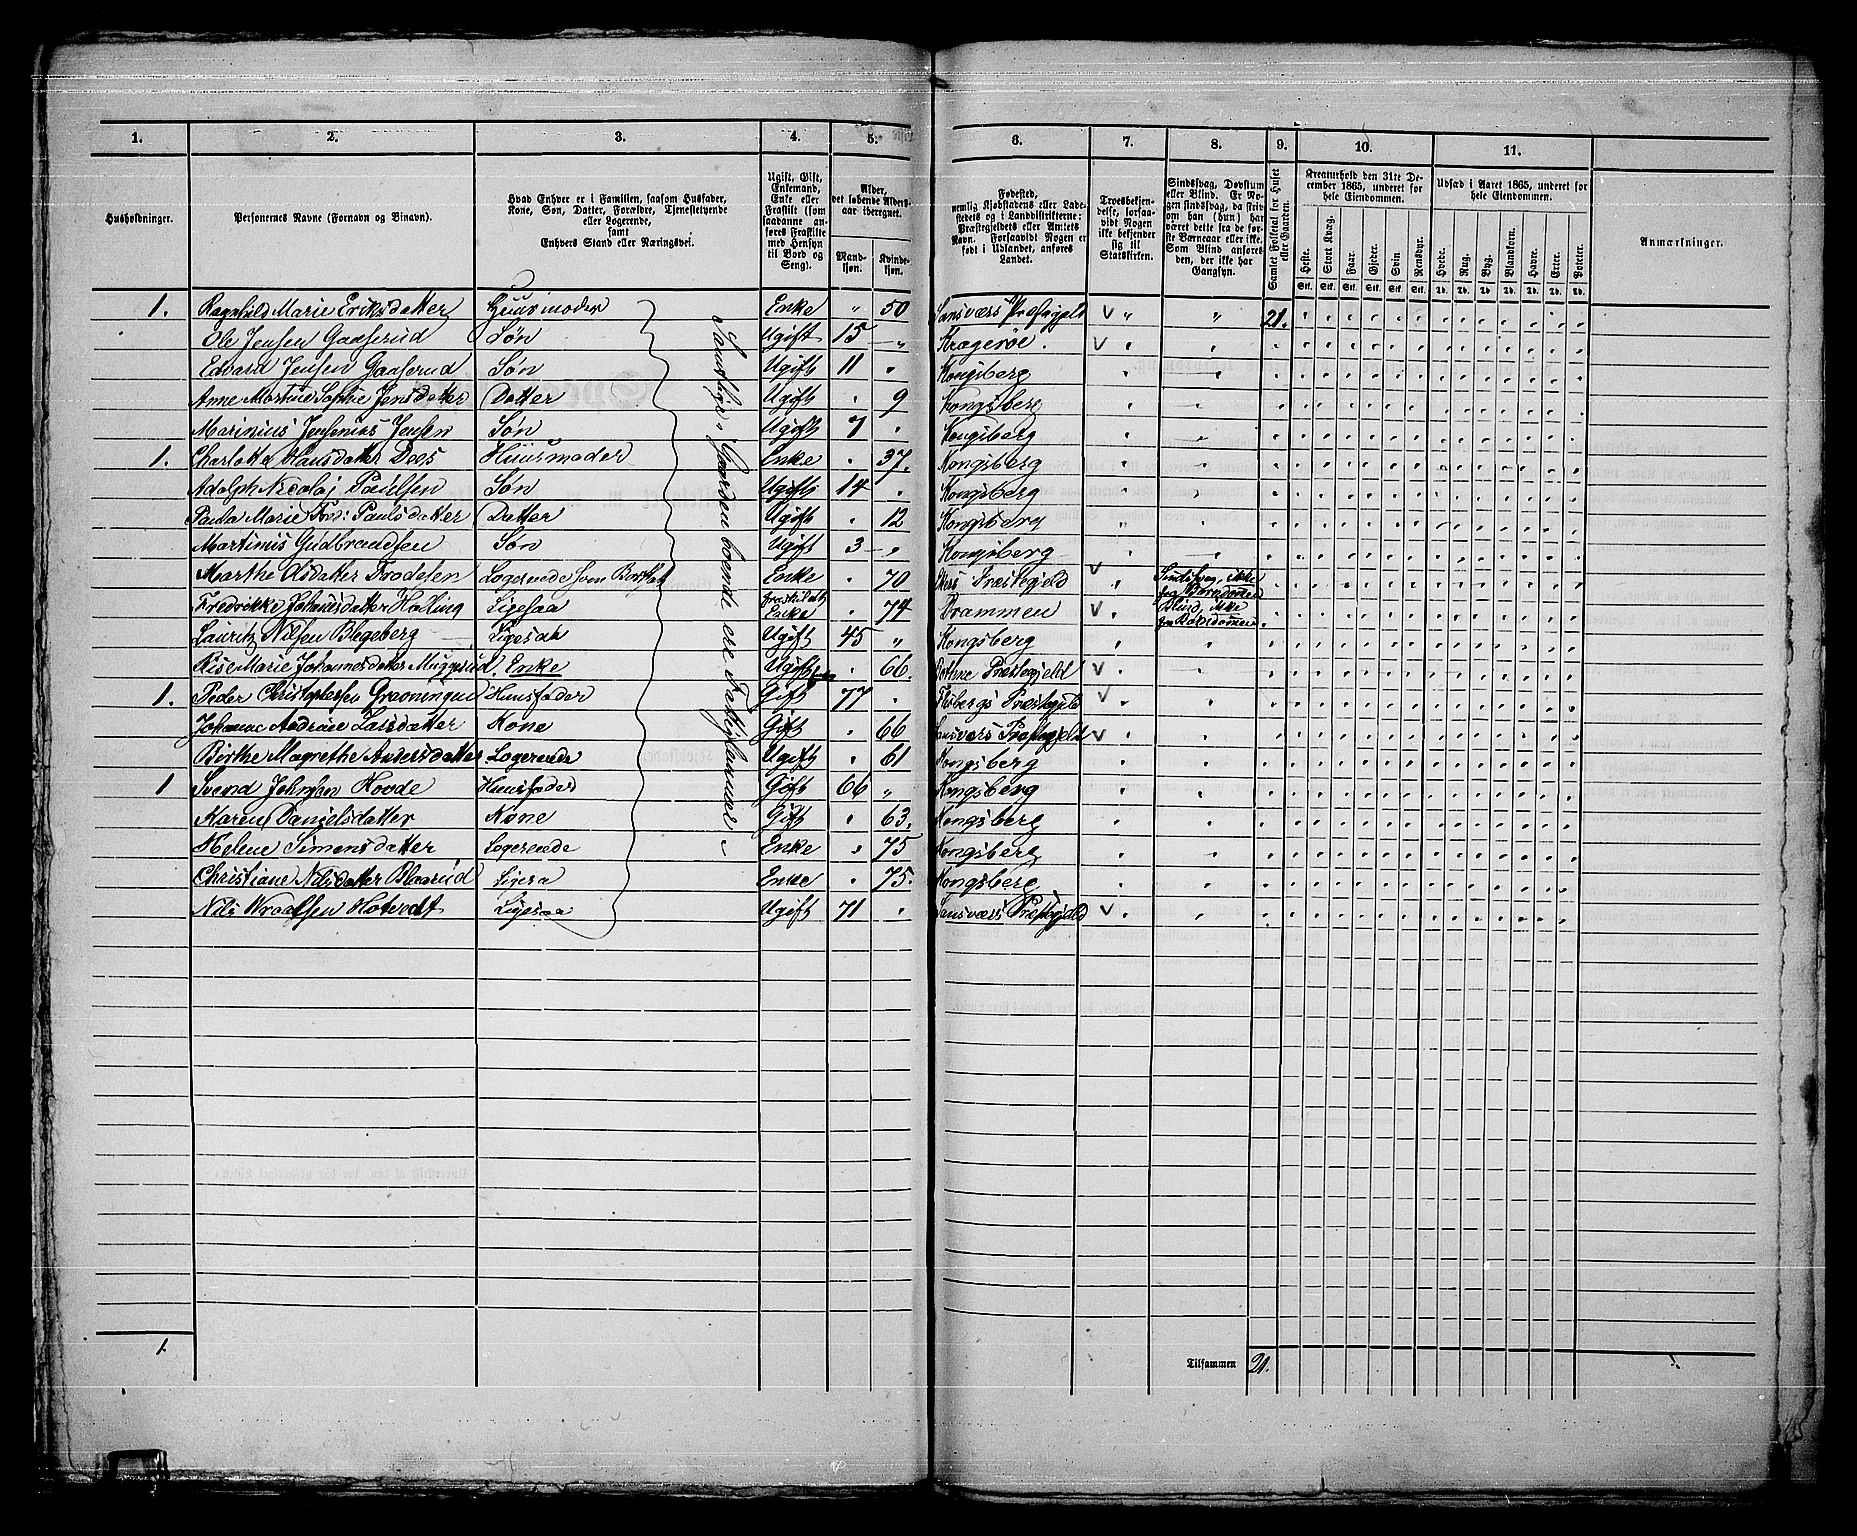 1. 2. 3. 4. 5. 6. 7. 8. 9. 10. 11.
Husholdninger.
Personernes Navne (Fornavn og Binavn).
Hvad Enhver er i Familien, saasom Husfader,
Kone, Søn, Datter, Forældre, Tjenestetyende
eller Logerende,
samt
Enhvers Stand eller Næringsvei.
Ugift, Gift,
Enkemand,
Enke eller
Fraskilt (som
saadanne an-
føres Fraskilte
med Hensyn
til Bord og
Seng).
Alder,
det løbende Alders-
aar iberegnet.
Mand-
kjøn.
Kvinde-
kjøn.
Fødested,
nemlig Kjøbstadens eller Lade-
stedets og i Landdistrikterne:
Præstegjeldets eller Amtets
Navn. Forsaavidt Nogen er
født i Udlandet, anføres
Landet.
Troesbekjen-
delse, forsaa-
vidt Nogen
ikke bekjender
sig til
Statskirken.
Sindssvag, Døvstum
eller Blind. Er No-
gen sindssvag, da hvor-
om han (hun) har
været dette fra de før-
ste Barneaar eller ikke.
Som Blind anføres
den, der ikke har
Gangsyn.
Samlet Folketal for Huset
eller Gaarden.
Kreaturhold den 31te De-
cember 1865, underet for
hele Eiendommen.
Heste. Stort Kvæg. Faar. Gjeder. Svin Rensdyr.
Stk. Stk. Stk. Stk. Stk. Stk.
Udsæd i Aaret 1865, underet for
hele Eiendommen.
Hvede. Rug. Byg. Blandkorn. Havre. Erter. Poteter.
Td. Td. Td. Td. Td. Td. Td.
Anmærkninger.
1. Ragnhild Marie Eriksdatter Huusmoder Enke " 50 Sansværs Præstegjeld V " " 21.
Ole Jensen Gaaserud Søn Ugift 15 " Kragerøe. V
Edvard Jensen Gaaserud Søn Ugift 11 " Kongsberg
Anne Martine Sophie Jensdatter Datter Ugift " 9 Kongsberg
Marinius Jensenius Jensen Søn Ugift 7 " Kongsberg
1. Charlotte Hansdatter Dees Huusmoder Enke " 37. Kongsberg
Adolph Nicolaj Paulsen Søn Ugift 14 " Kongsberg
Paula Marie Fred: Paulsdatter Datter Ugift " 12 Kongsberg
Martinius Gudbrandsen Søn Ugift 3 " Kongsberg
Marthe Olsdatter Logerende Enke " 70 Ekers Præstegjeld V Sindsvag, ikke fra Barndommen
Fredrikke Johansdatter Halling Ligesaa fraskildt Enke " 74 Drammen V Blind, ikke fra Barndommen.
Lauritz Nilsen Blegeberg Ligesaa Ugift 45 " Kongsberg
Risemarie Johannesdatter Muggerud. Enke Ugift " 66. Botne Præstegjeld V
1. Peder Christophersen Grønningen Huusfader Gift 77 " Flesbergs Præstegjeld V
Johanne Andrine Larsdatter Kone Gift " 66 Sansværs Præstegjeld V
Birthe Magrethe Andersdatter Logerende Ugift " 61 Kongsberg
1 Svend Johnsen Hovde Huusfader Gift 66 " Kongsberg
Karen Danielsdatter Kone Gift " 63. Kongsberg
Helene Simensdatter Logerende Enke " 75 Kongsberg
Christiane Nilsdatter Blaarud Ligesa Enke " 75. Kongsberg
Nils Wraalsen Hotvedt Ligesaa Ugift 71 " Sansværs Præstegjeld V
Samtlige i Gaarden boende ere Fattiglemmer
1.
Tilsammen 21.